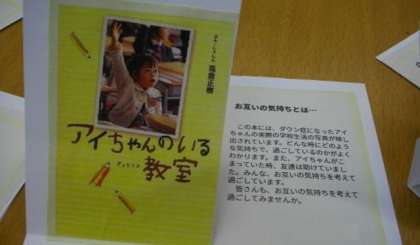 高倉正樹
アイちゃんのいる
きょうしつ
教室
お互いの気持ちとは…
この本には、ダウン症になったアイ
ちゃんの実際の学校生活の写真が映し
出されています。どんな時にどのよう
な気持ちで、過ごしているのかがよく
わかります。また、アイちゃんがこ
まっていた時、友達は助けていまし
た。みんな、お互いの気持ちを考えて
過ごしています。
皆さんも、お互いの気持ちを考えて
過ごしてみませんか。